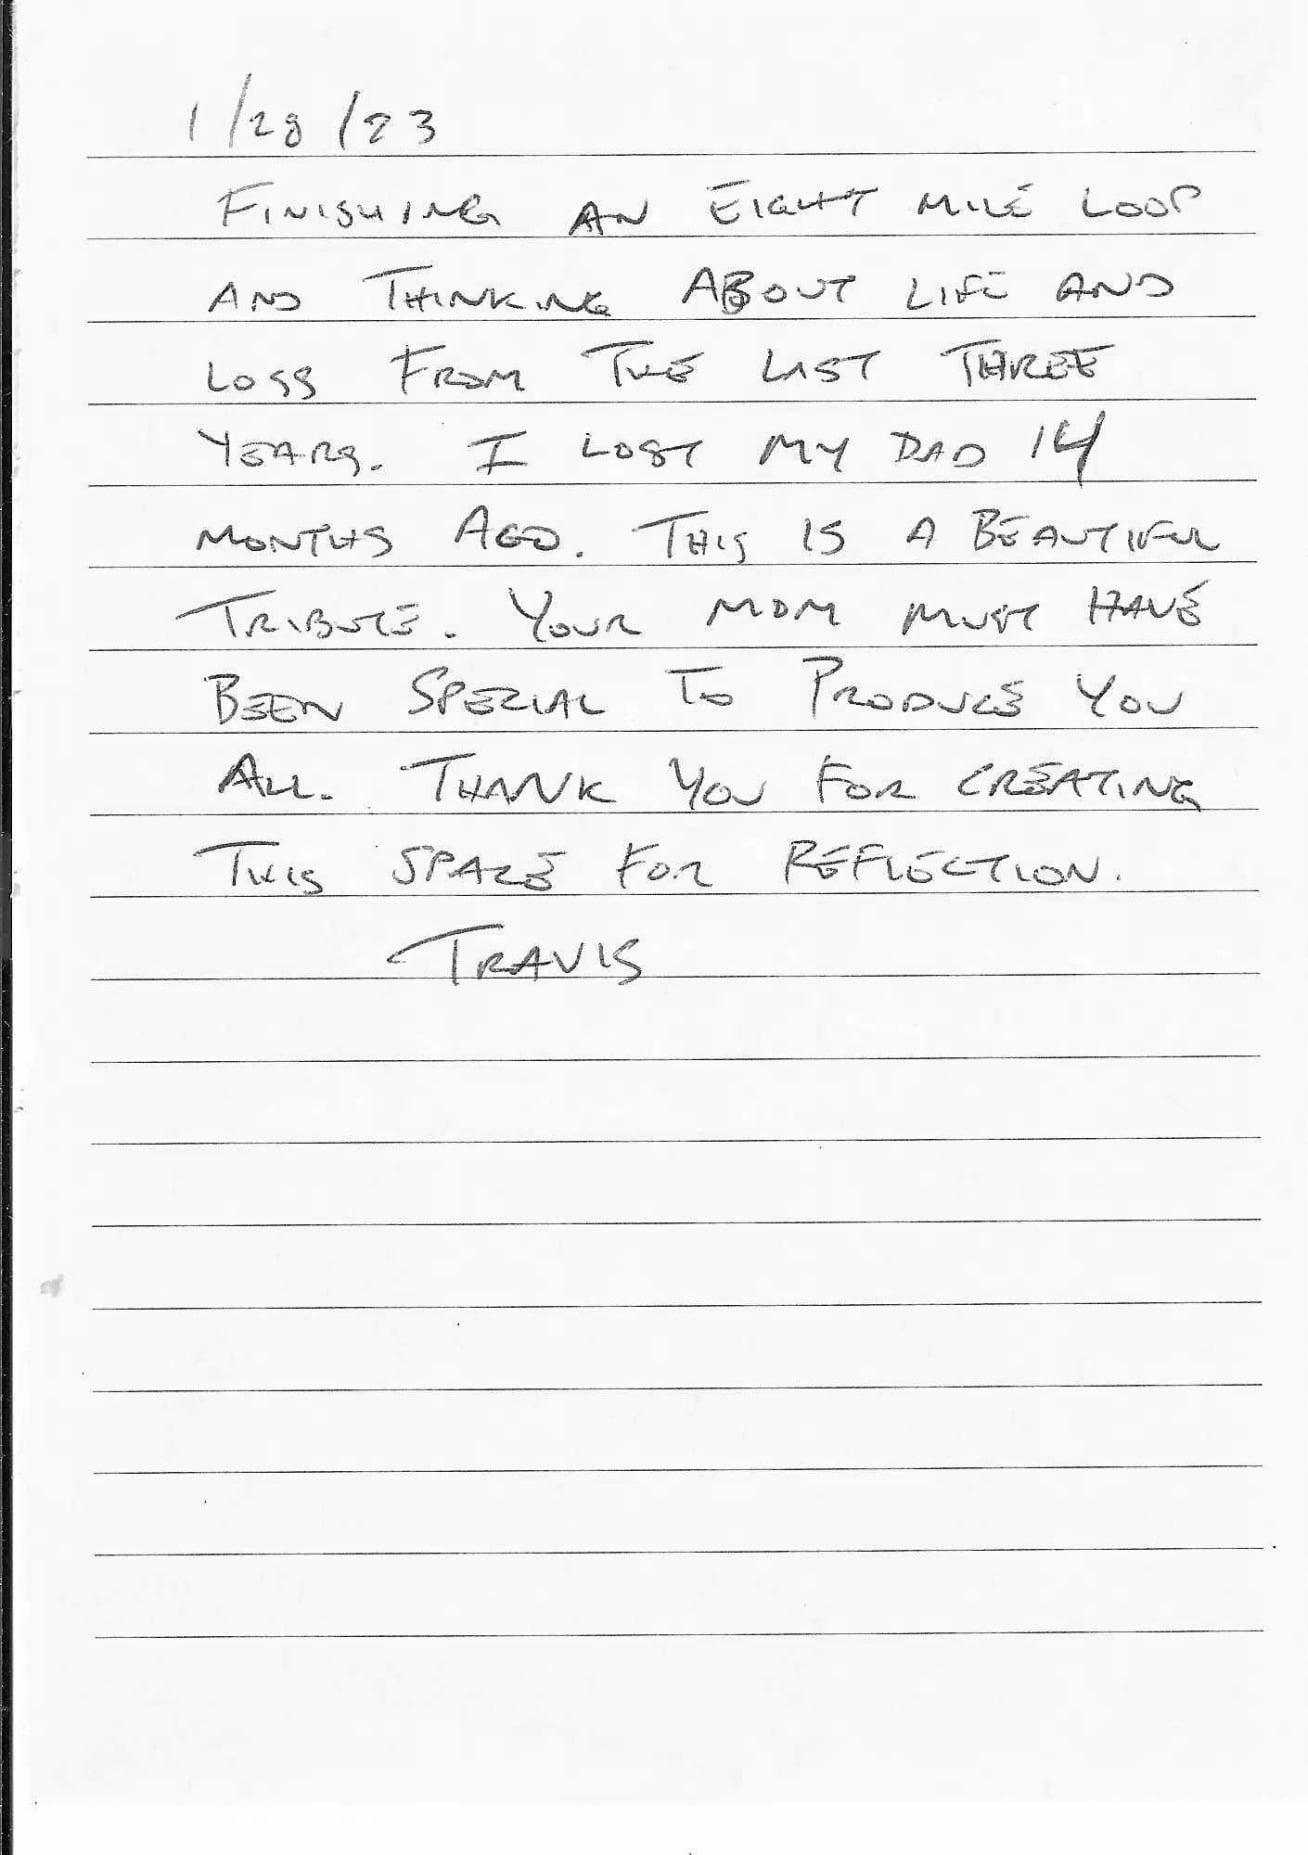 1/28/23
FINISHING AN EIGHT MILE LOOP
AND THINKING ABOUT LIFE AND
LOSS FROM THE LAST THREE
YEARS. I LOST MY DAD 14
MONTHS AGO. THIS IS A BEAUTIFUL
TRIBUTE. YOUR MOM MUST HAVE
BEEN SPECIAL TO PRODUCE YOU
ALL. THANK YOU FOR CREATING
THIS SPACE FOR REFLECTION.
TRAVIS